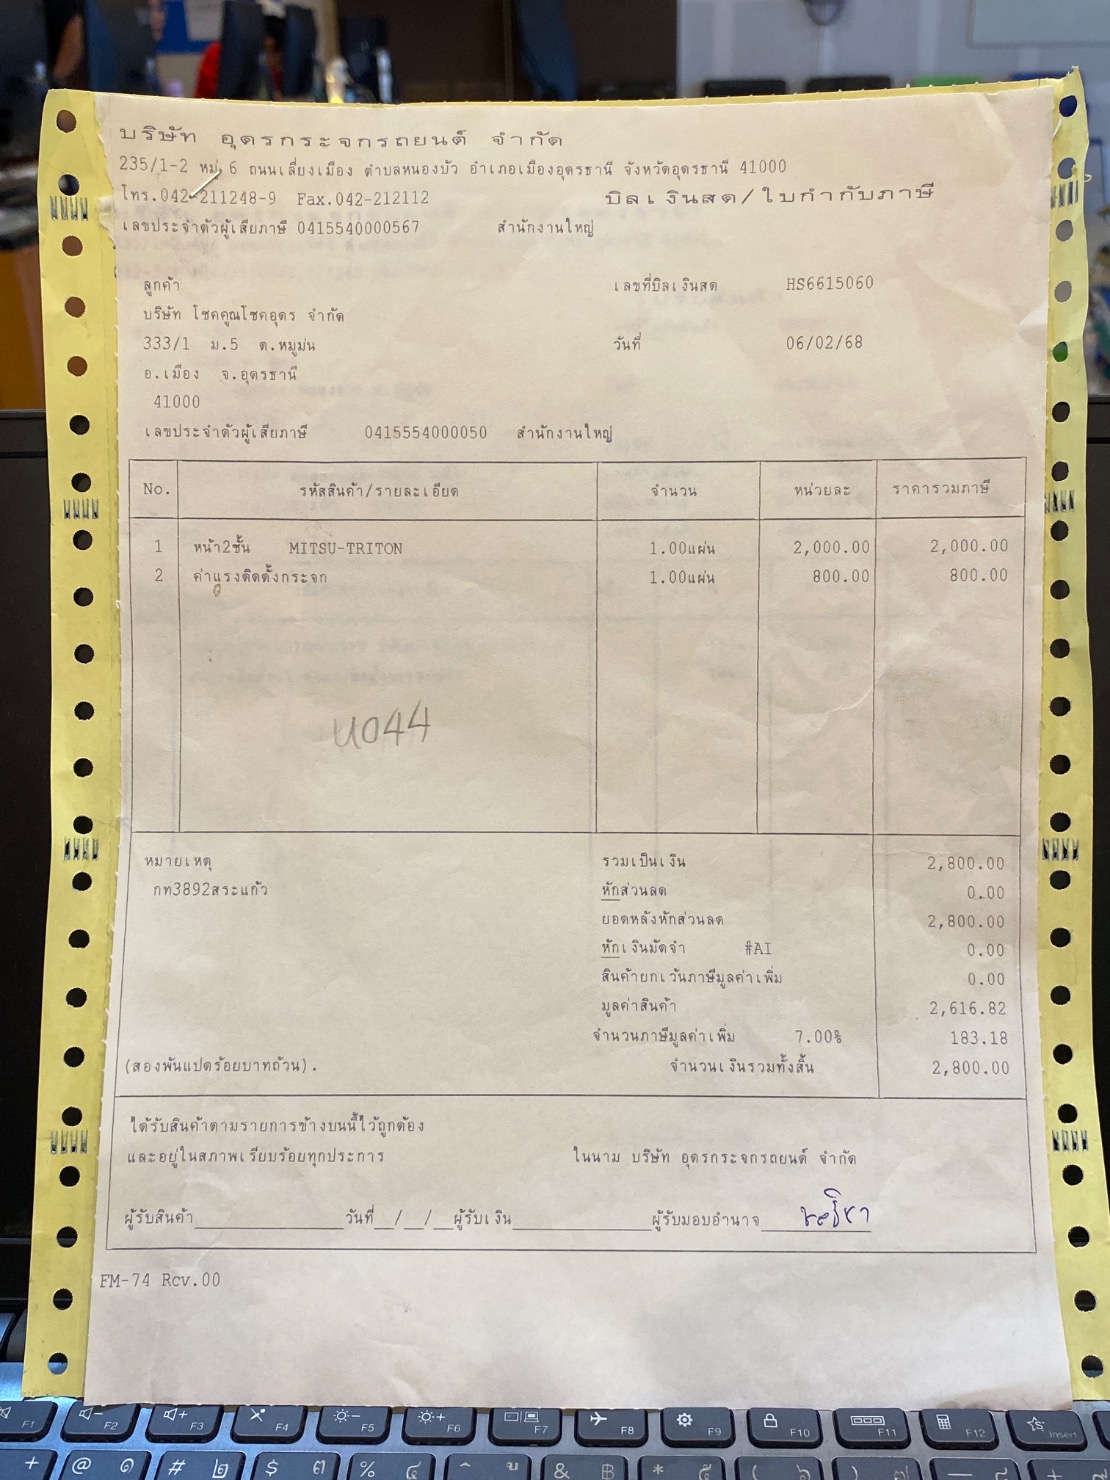 บริษัท อุดรกระจกรถยนต์ จำกัด
235/1-2 หมู่ 6 ถนนเลี่ยงเมือง ตำบลหนองบัว อำเภอเมืองอุดรธานี จังหวัดอุดรธานี 41000
โทร.042-211248-9 Fax.042-212112 บิลเงินสด/ใบกำกับภาษี
เลขประจำตัวผู้เสียภาษี 0415540000567 สำนักงานใหญ่
ลูกค้า เลขที่บิลเงินสด HS6615060
บริษัท โชคคูณโชคอุดร จำกัด
333/1 ม.5 ต.หมูม่น วันที่ 06/02/68
อ.เมือง จ.อุดรธานี
41000
เลขประจำตัวผู้เสียภาษี 0415554000050 สำนักงานใหญ่
No. รหัสสินค้า/รายละเอียด จำนวน หน่วยละ ราคารวมภาษี
1 หน้า2ชั้น MITSU-TRITON 1.00แผ่น 2,000.00 2,000.00
2 ค่าแรงติดตั้งกระจก 1.00แผ่น 800.00 800.00
U044
หมายเหตุ รวมเป็นเงิน 2,800.00
กท3892สระแก้ว หักส่วนลด 0.00
ยอดหลังหักส่วนลด 2,800.00
หักเงินมัดจำ #AI 0.00
สินค้ายกเว้นภาษีมูลค่าเพิ่ม 0.00
มูลค่าสินค้า 2,616.82
จำนวนภาษีมูลค่าเพิ่ม 7.00% 183.18
(สองพันแปดร้อยบาทถ้วน). จำนวนเงินรวมทั้งสิ้น 2,800.00
ได้รับสินค้าตามรายการข้างบนนี้ไว้ถูกต้อง
และอยู่ในสภาพเรียบร้อยทุกประการ ในนาม บริษัท อุดรกระจกรถยนต์ จำกัด
ผู้รับสินค้า วันที่ / / ผู้รับเงิน ผู้รับมอบอำนาจ
FM-74 Rev.00
F1 F2 F3 F4 F5 F6 F7 F8 F9 F10 F11 F12 Insert
+ @ ๑ # ๒ $ ๓ % ๔ & ฿ * ๕